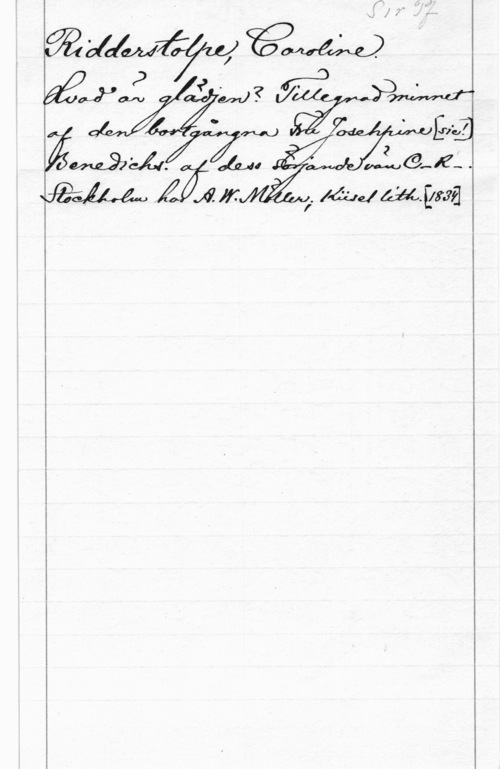 Ridderstolpe, Caroline.
Hvad är glädjen? Tillegnad minnet
af den bortgångna Fru Josehpine [sic!]
Benedichs. af dess sörjande vän C-R-.
Stockholm hos A. W. Möller; Küsel lith. [1834]